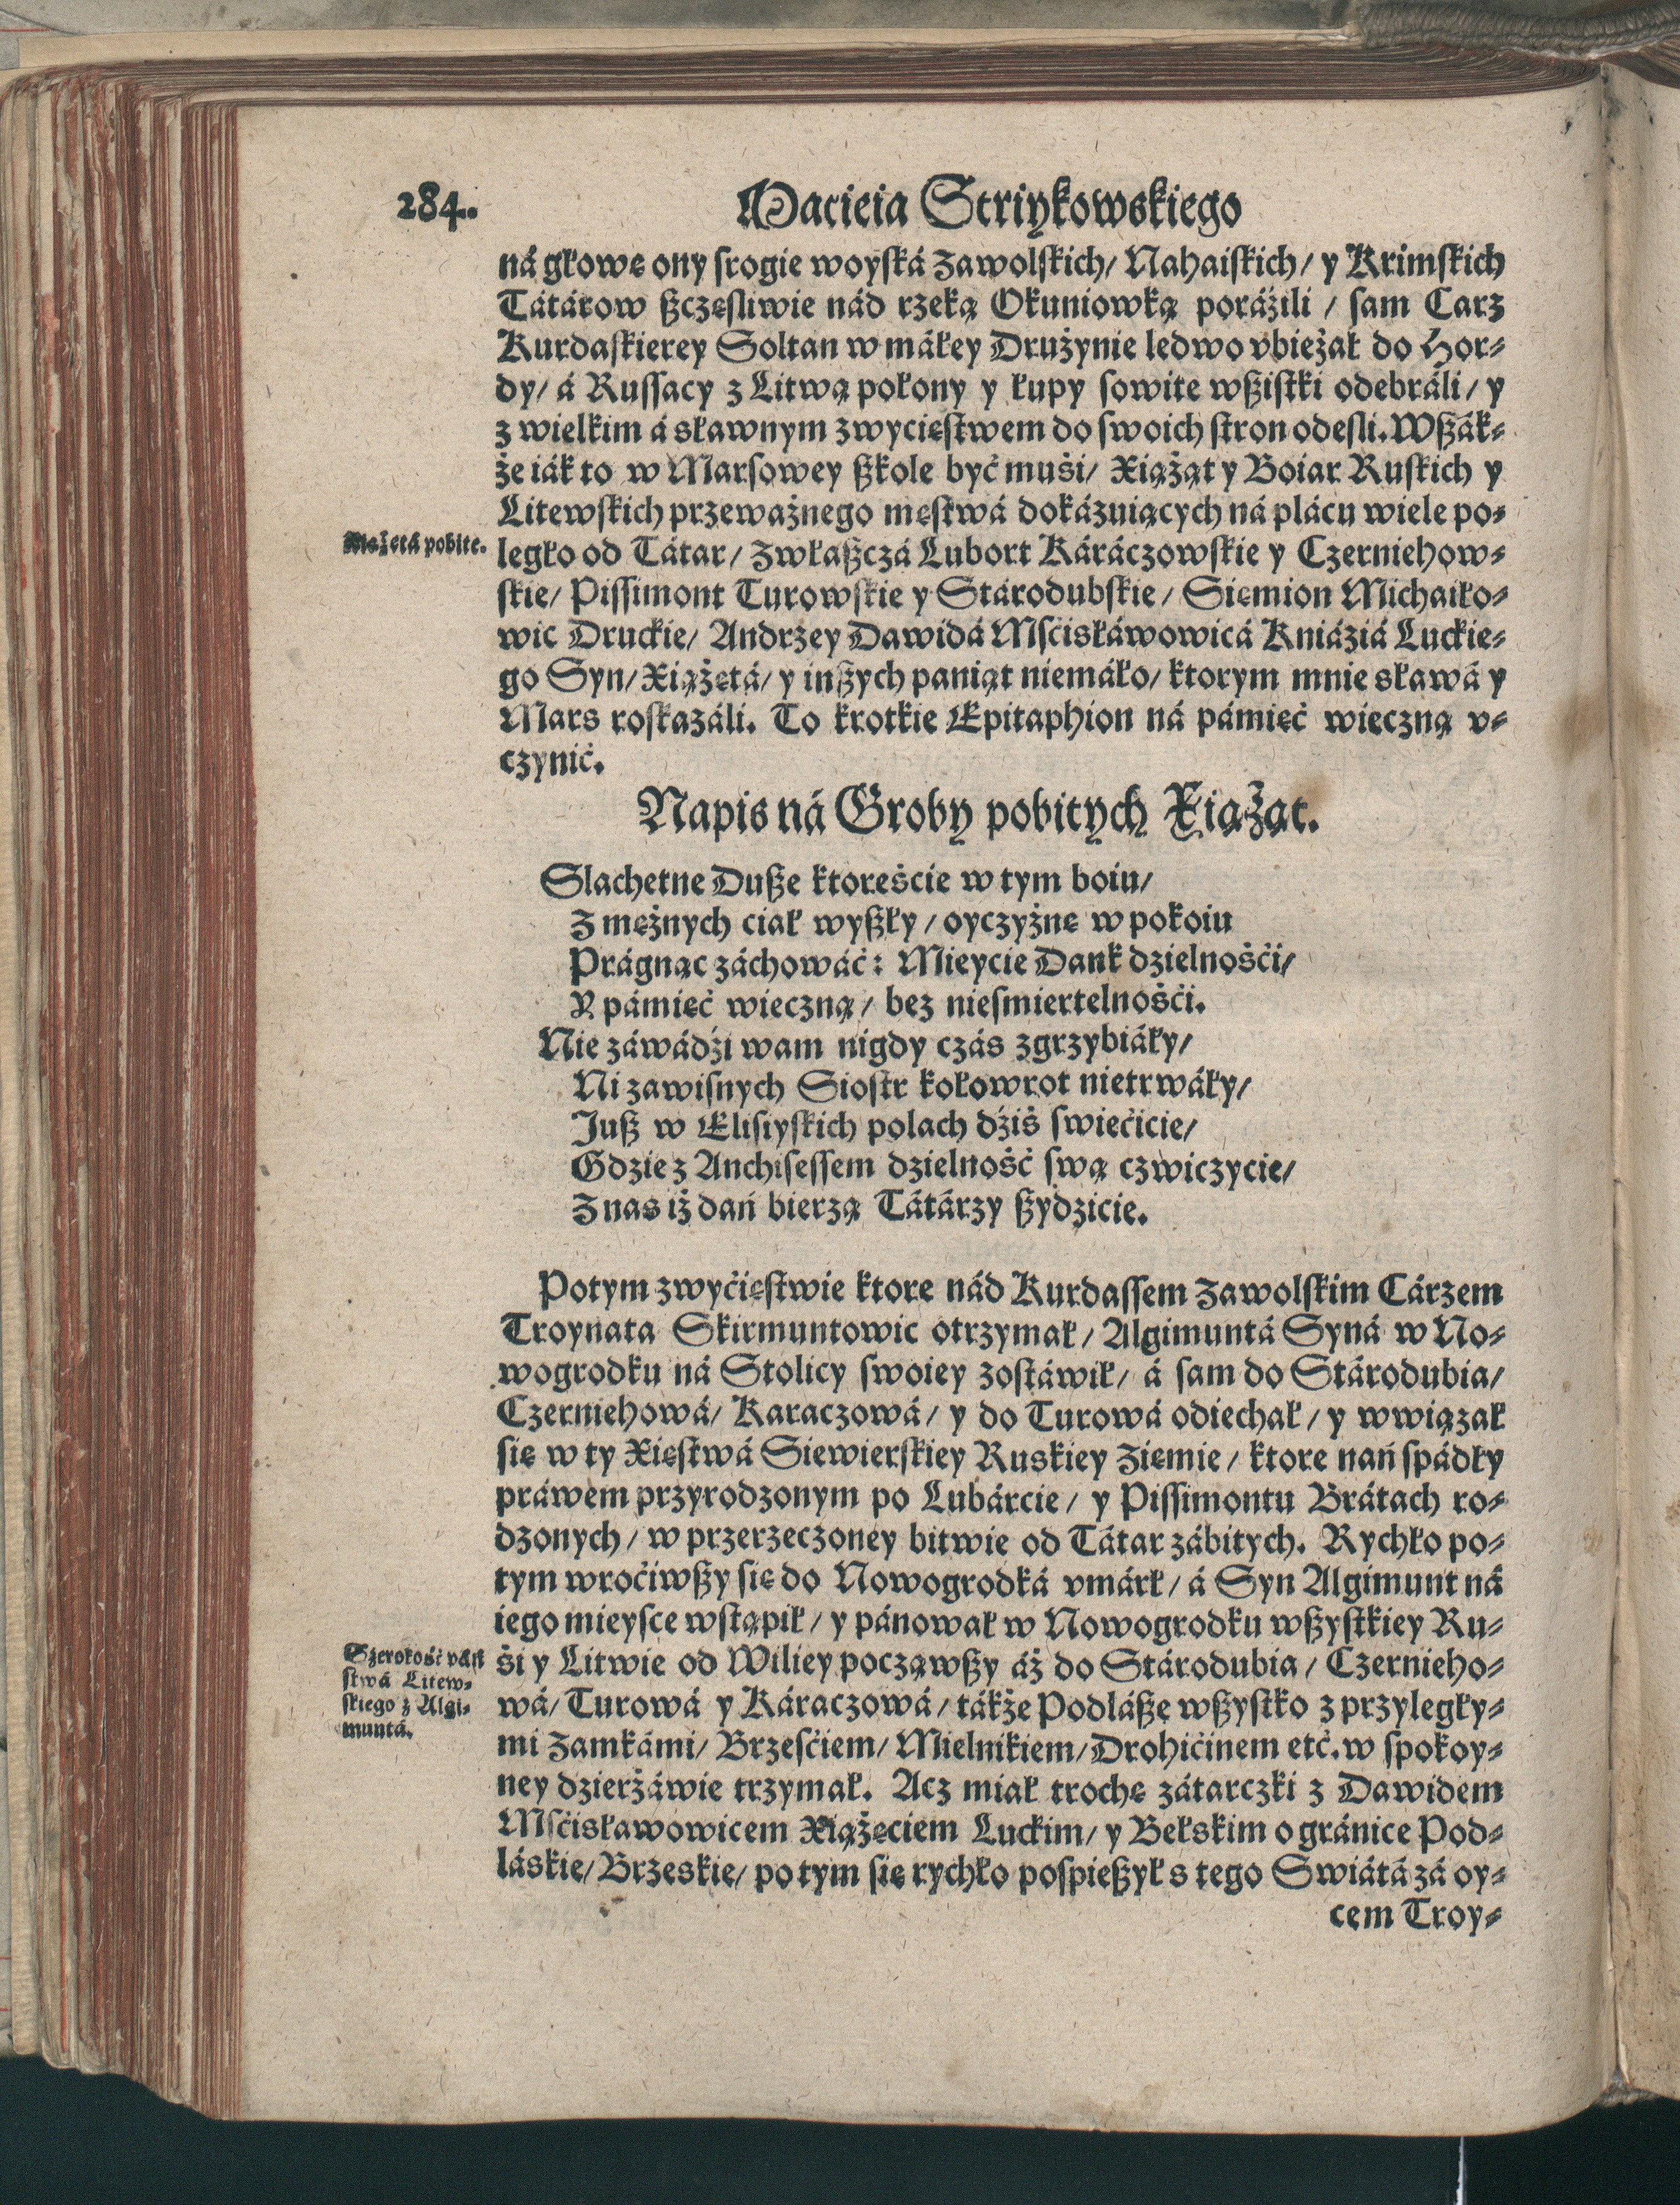 284.
Macieia Striykowskiego
ná głowę ony srogie woyská Zawolskich/ Nahaiskich/ y Krimskich
Tátárow szczęsliwie nád rzeką Okuniowką poráźili / sam Carz
Kurdaskierey Soltan w máłey Drużynie ledwo vbieżał do Hor-
dy/ á Russacy z Litwą połony y łupy sowite wszistki odebráli/ y
z wielkim á sławnym zwycięstwem do swoich stron odesli. Wszák-
że iák to w Marsowey szkole być muśi/ Xiążąt y Boiar Ruskich y
Litewskich przeważnego męstwá dokázuiących ná plácu wiele po-
Xiążętá pobite.
legło od Tátar/ zwłaszczá Lubort Káráczowskie y Czerniehow-
skie/ Pissimont Turowskie y Stárodubskie/ Siemion Michaiło-
wic Druckie/ Andrzey Dawidá Mśćisłáwowicá Kniáziá Luckie-
go Syn/ Xiążętá/ y inszych paniąt niemáło/ ktorym mnie sławá y
Mars roskazáli. To krotkie Epitaphion ná pámięć wieczną v-
czynić.
Napis ná Groby pobitych Xiążąt.
Slachetne Dusze ktoreście w tym boiu/
Z mężnych ciał wyszły/ oyczyżnę w pokoiu
Prágnąc záchowáć: Mieycie Dank dzielnośći/
Y pámięć wieczną/ bez niesmiertelnośći.
Nie záwádźi wam nigdy czás zgrzybiáły/
Ni zawisnych Siostr kołowrot nietrwáły/
Jusz w Elisiyskich polach dźiś swiećicie/
Gdzie z Anchisessem dzielność swą czwiczycie/
Z nas iż dań bierzą Tátárzy szydzicie.
Potym zwyćięstwie ktore nád Kurdassem Zawolskim Cárzem
Troynata Skirmuntowic otrzymał/ Algimuntá Syná w No-
wogrodku ná Stolicy swoiey zostáwił/ á sam do Stárodubia/
Czerniehowá/ Karaczowá/ y do Turowá odiechał/ y wwiązał
się w ty Xięstwá Siewierskiey Ruskiey Ziemie/ ktore nań spádły
práwem przyrodzonym po Lubárcie/ y Pissimontu Brátach ro-
dzonych/ w przerzeczoney bitwie od Tátar zábitych. Rychło po-
tym wroćiwszy się do Nowogrodká vmárł/ á Syn Algimunt ná
iego mieysce wstąpił/ y pánował w Nowogrodku wszystkiey Ru-
Szerokość páń
stwá Litew-
skiego z Algi-
muntá.
śi y Litwie od Wiliey począwszy áż do Stárodubia/ Czernieho-
wá/ Turowá y Káraczowá/ tákże Podlászę wszystko z przyległy-
mi Zamkámi/ Brzesćiem/ Mielnikiem/ Drohićinem etć. w spokoy-
ney dzierżáwie trzymał. Acz miał trochę zátarczki z Dawidem
Mśćisławowicem Xiążęciem Luckim/ y Bełskim o gránice Pod-
láskie/ Brzeskie/ po tym się rychło pospieszył s tego Swiátá zá oy-
cem Troy-